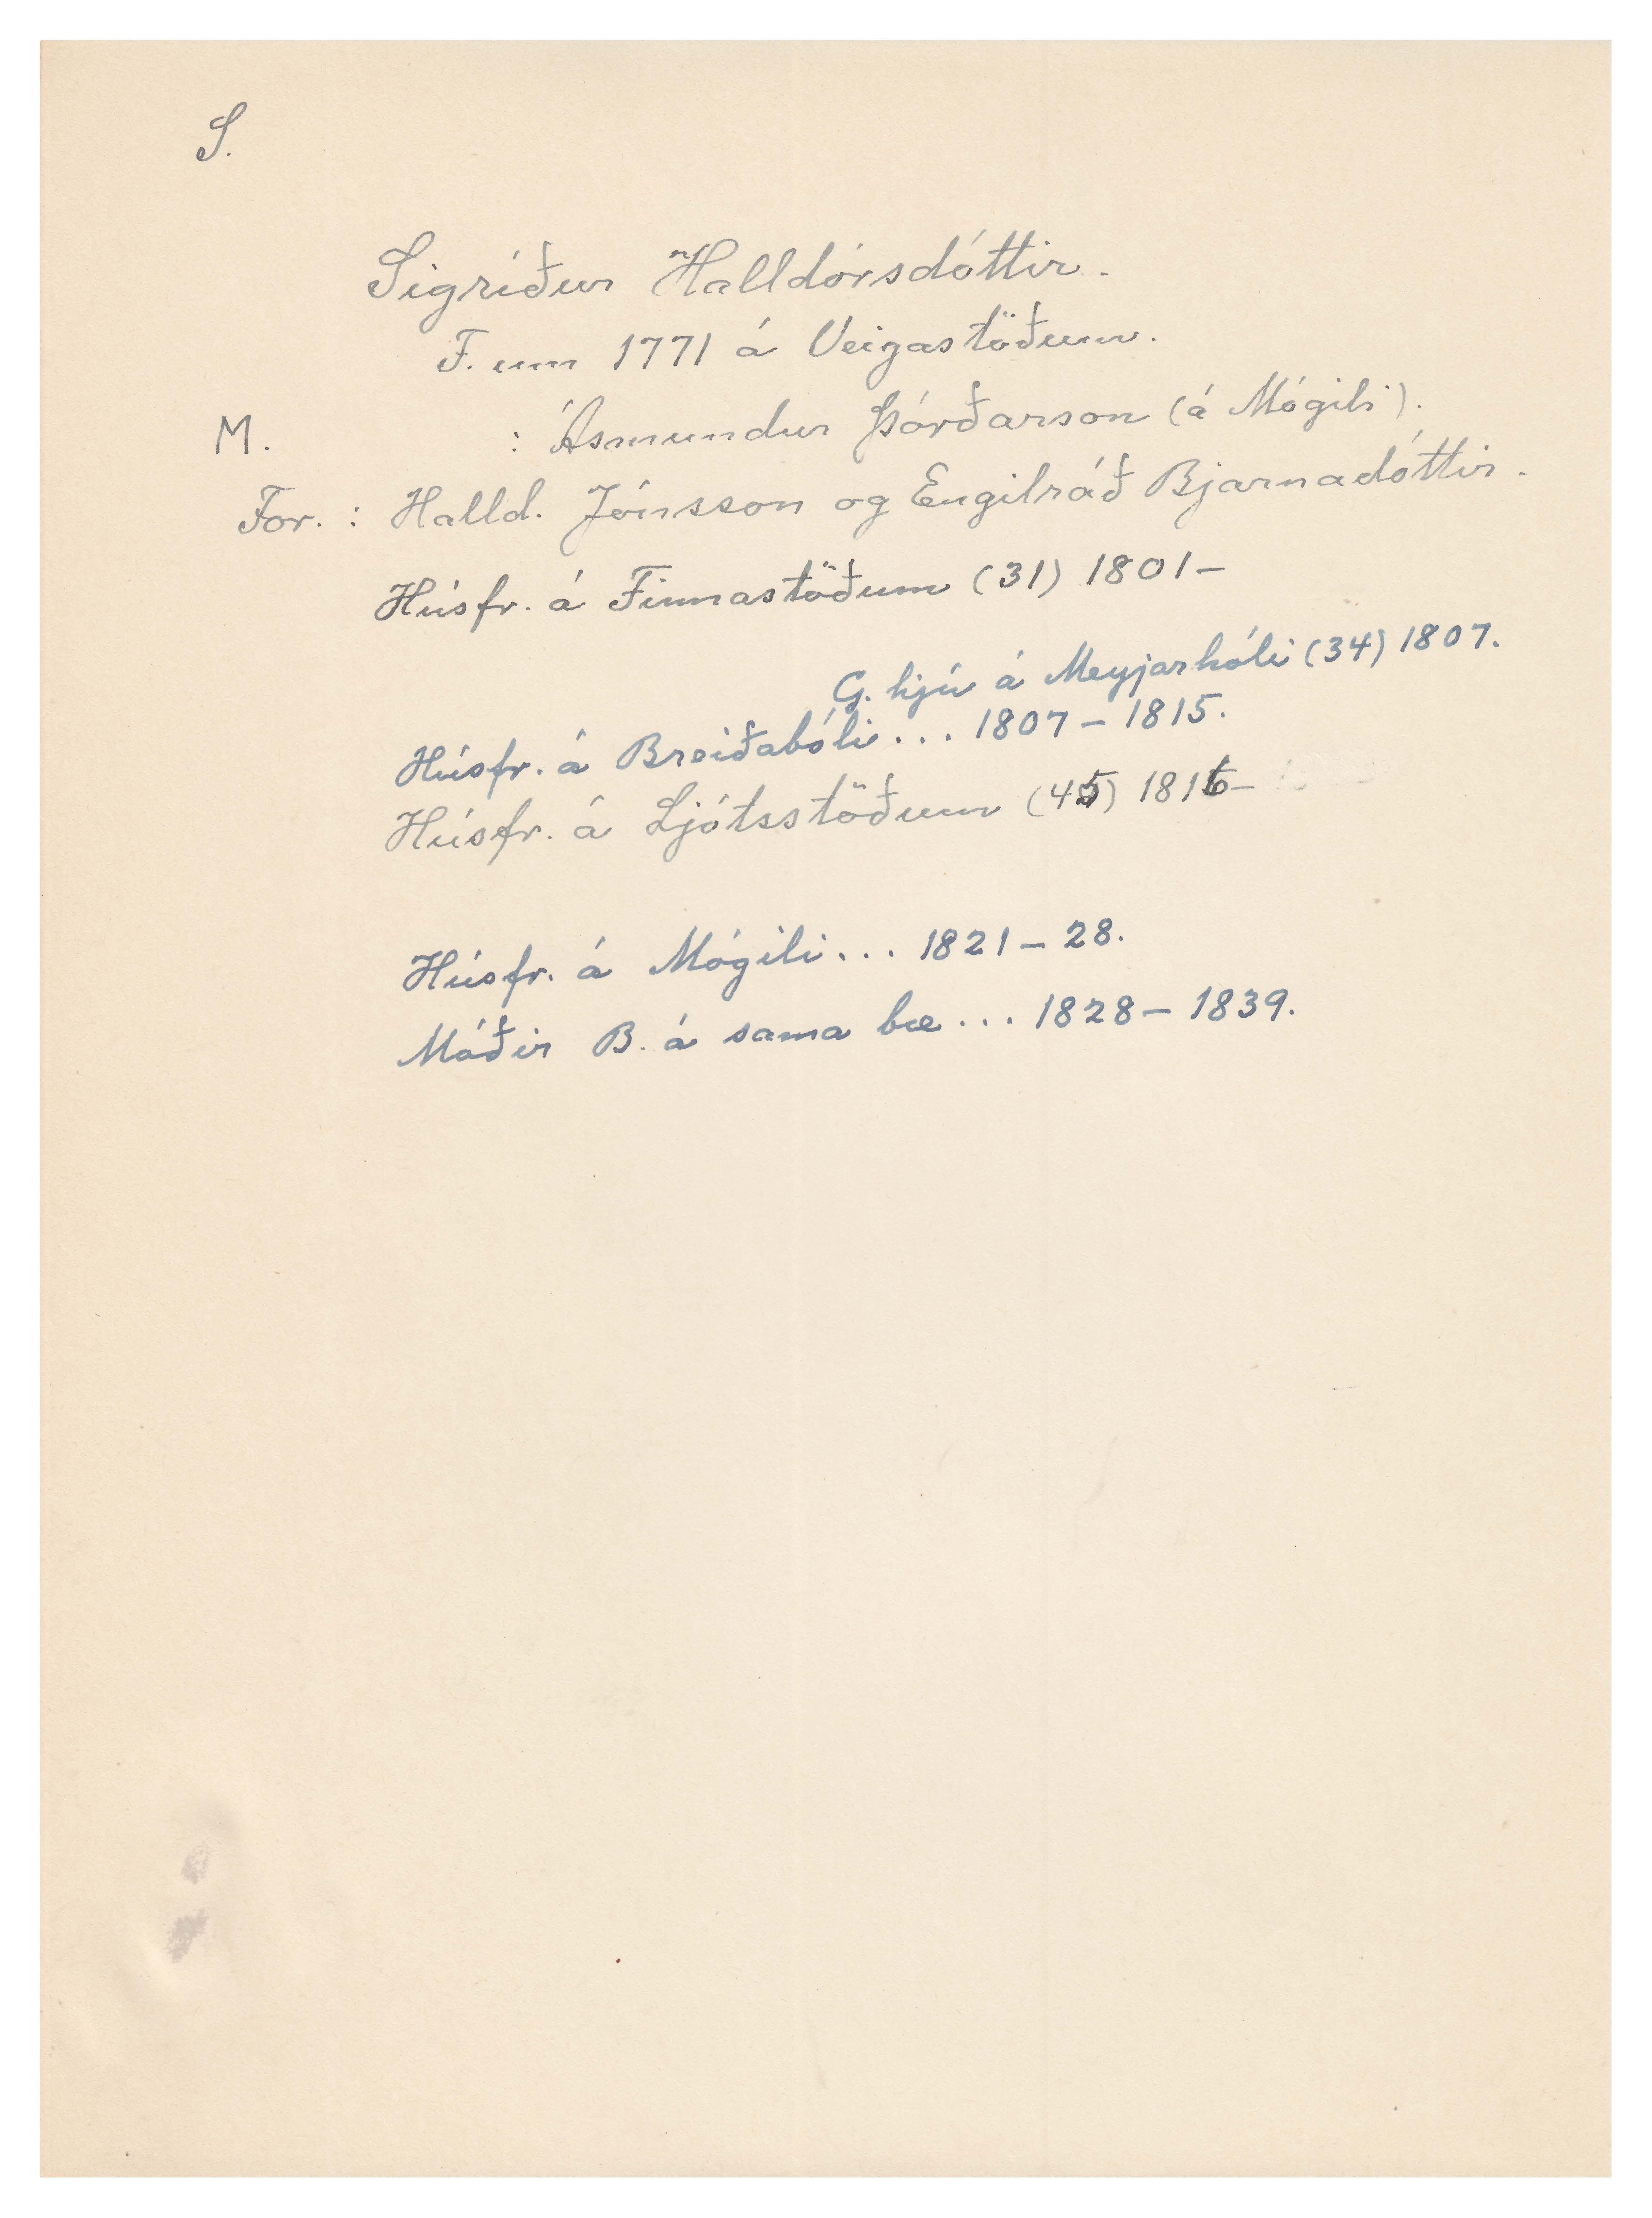 S.
Sigríður Halldórsdóttir.
F. um 1771 á Veigastöðum.
M. : Ásmundur Þórðarson (á Mógili).
For. : Halld. Jónsson og Engilráð Bjarnadóttir.
Húsfr. á Finnastöðum (31) 1801–
G. hjú á Meyjarhóli (34) 1807.
Húsfr. á Breiðabóli ... 1807 – 1815.
Húsfr. á Ljótsstöðum (45) 1816–
Húsfr. á Mógili ... 1821 – 28.
Móðir B. á sama bæ ... 1828 – 1839.